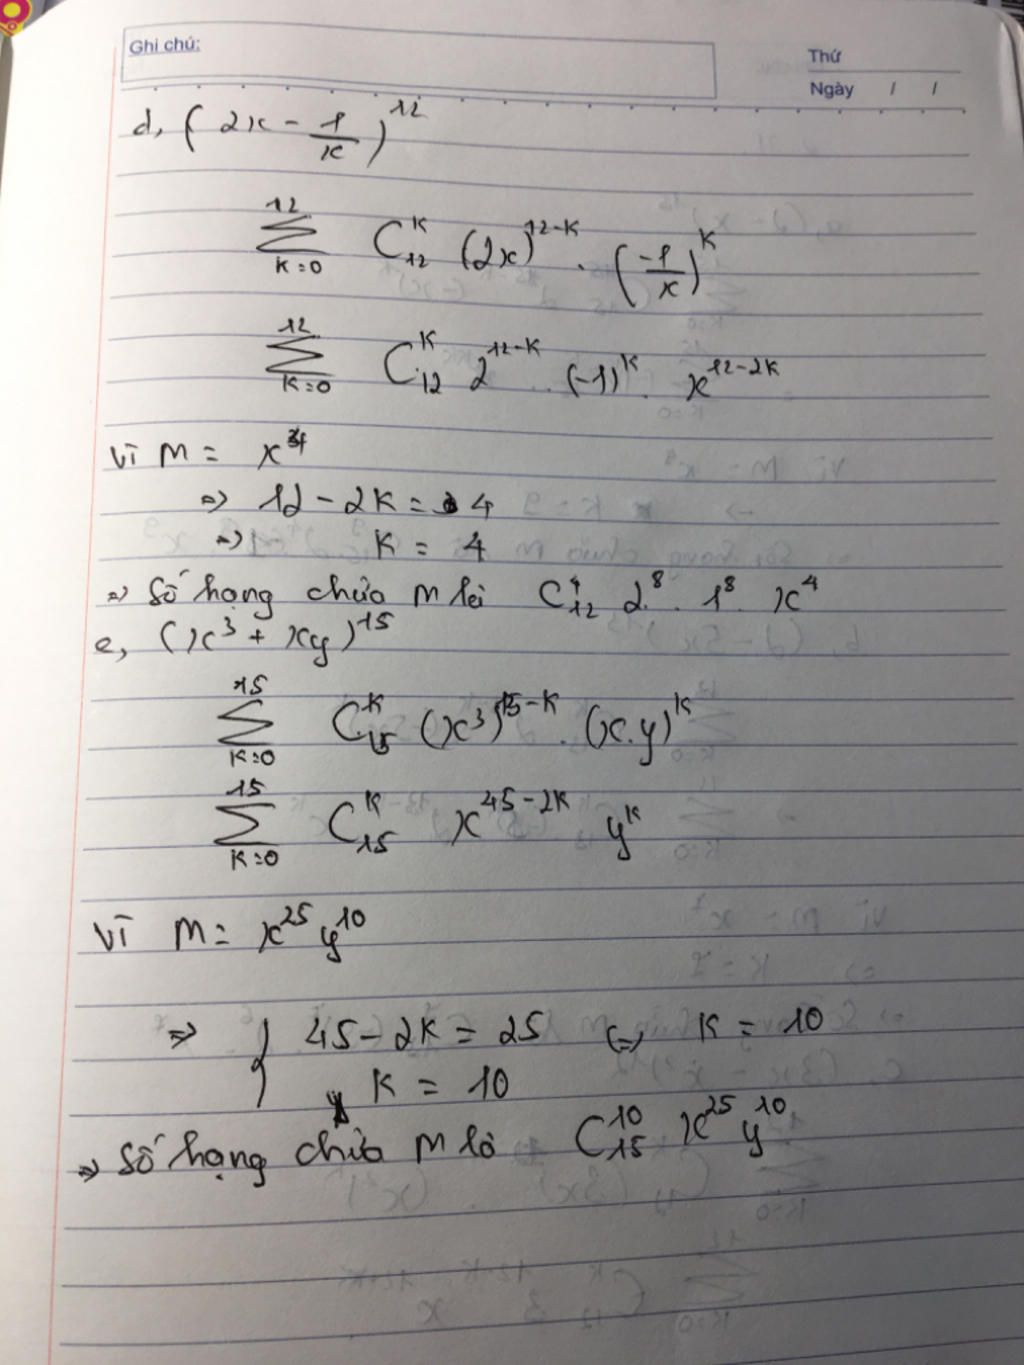 Ghi chú:
Thứ
Ngày / /
d, (2x - 1/x)^12
∑_{k=0}^{12} C_12^k (2x)^{12-k} . (-1/x)^k
∑_{k=0}^{12} C_12^k 2^{12-k} (-1)^k . x^{12-2k}
Vì M = x^4
=> 12 - 2k = 4
=> k = 4
=> Số hạng chứa M là C_12^4 2^8 . 1^8 . x^4
e, (x^3 + xy)^15
∑_{k=0}^{15} C_15^k (x^3)^{15-k} . (x.y)^k
∑_{k=0}^{15} C_15^k x^{45-2k} y^k
Vì M = x^25 y^10
=> { 45 - 2k = 25 <=> k = 10
k = 10
=> Số hạng chứa M là C_15^10 x^25 y^10